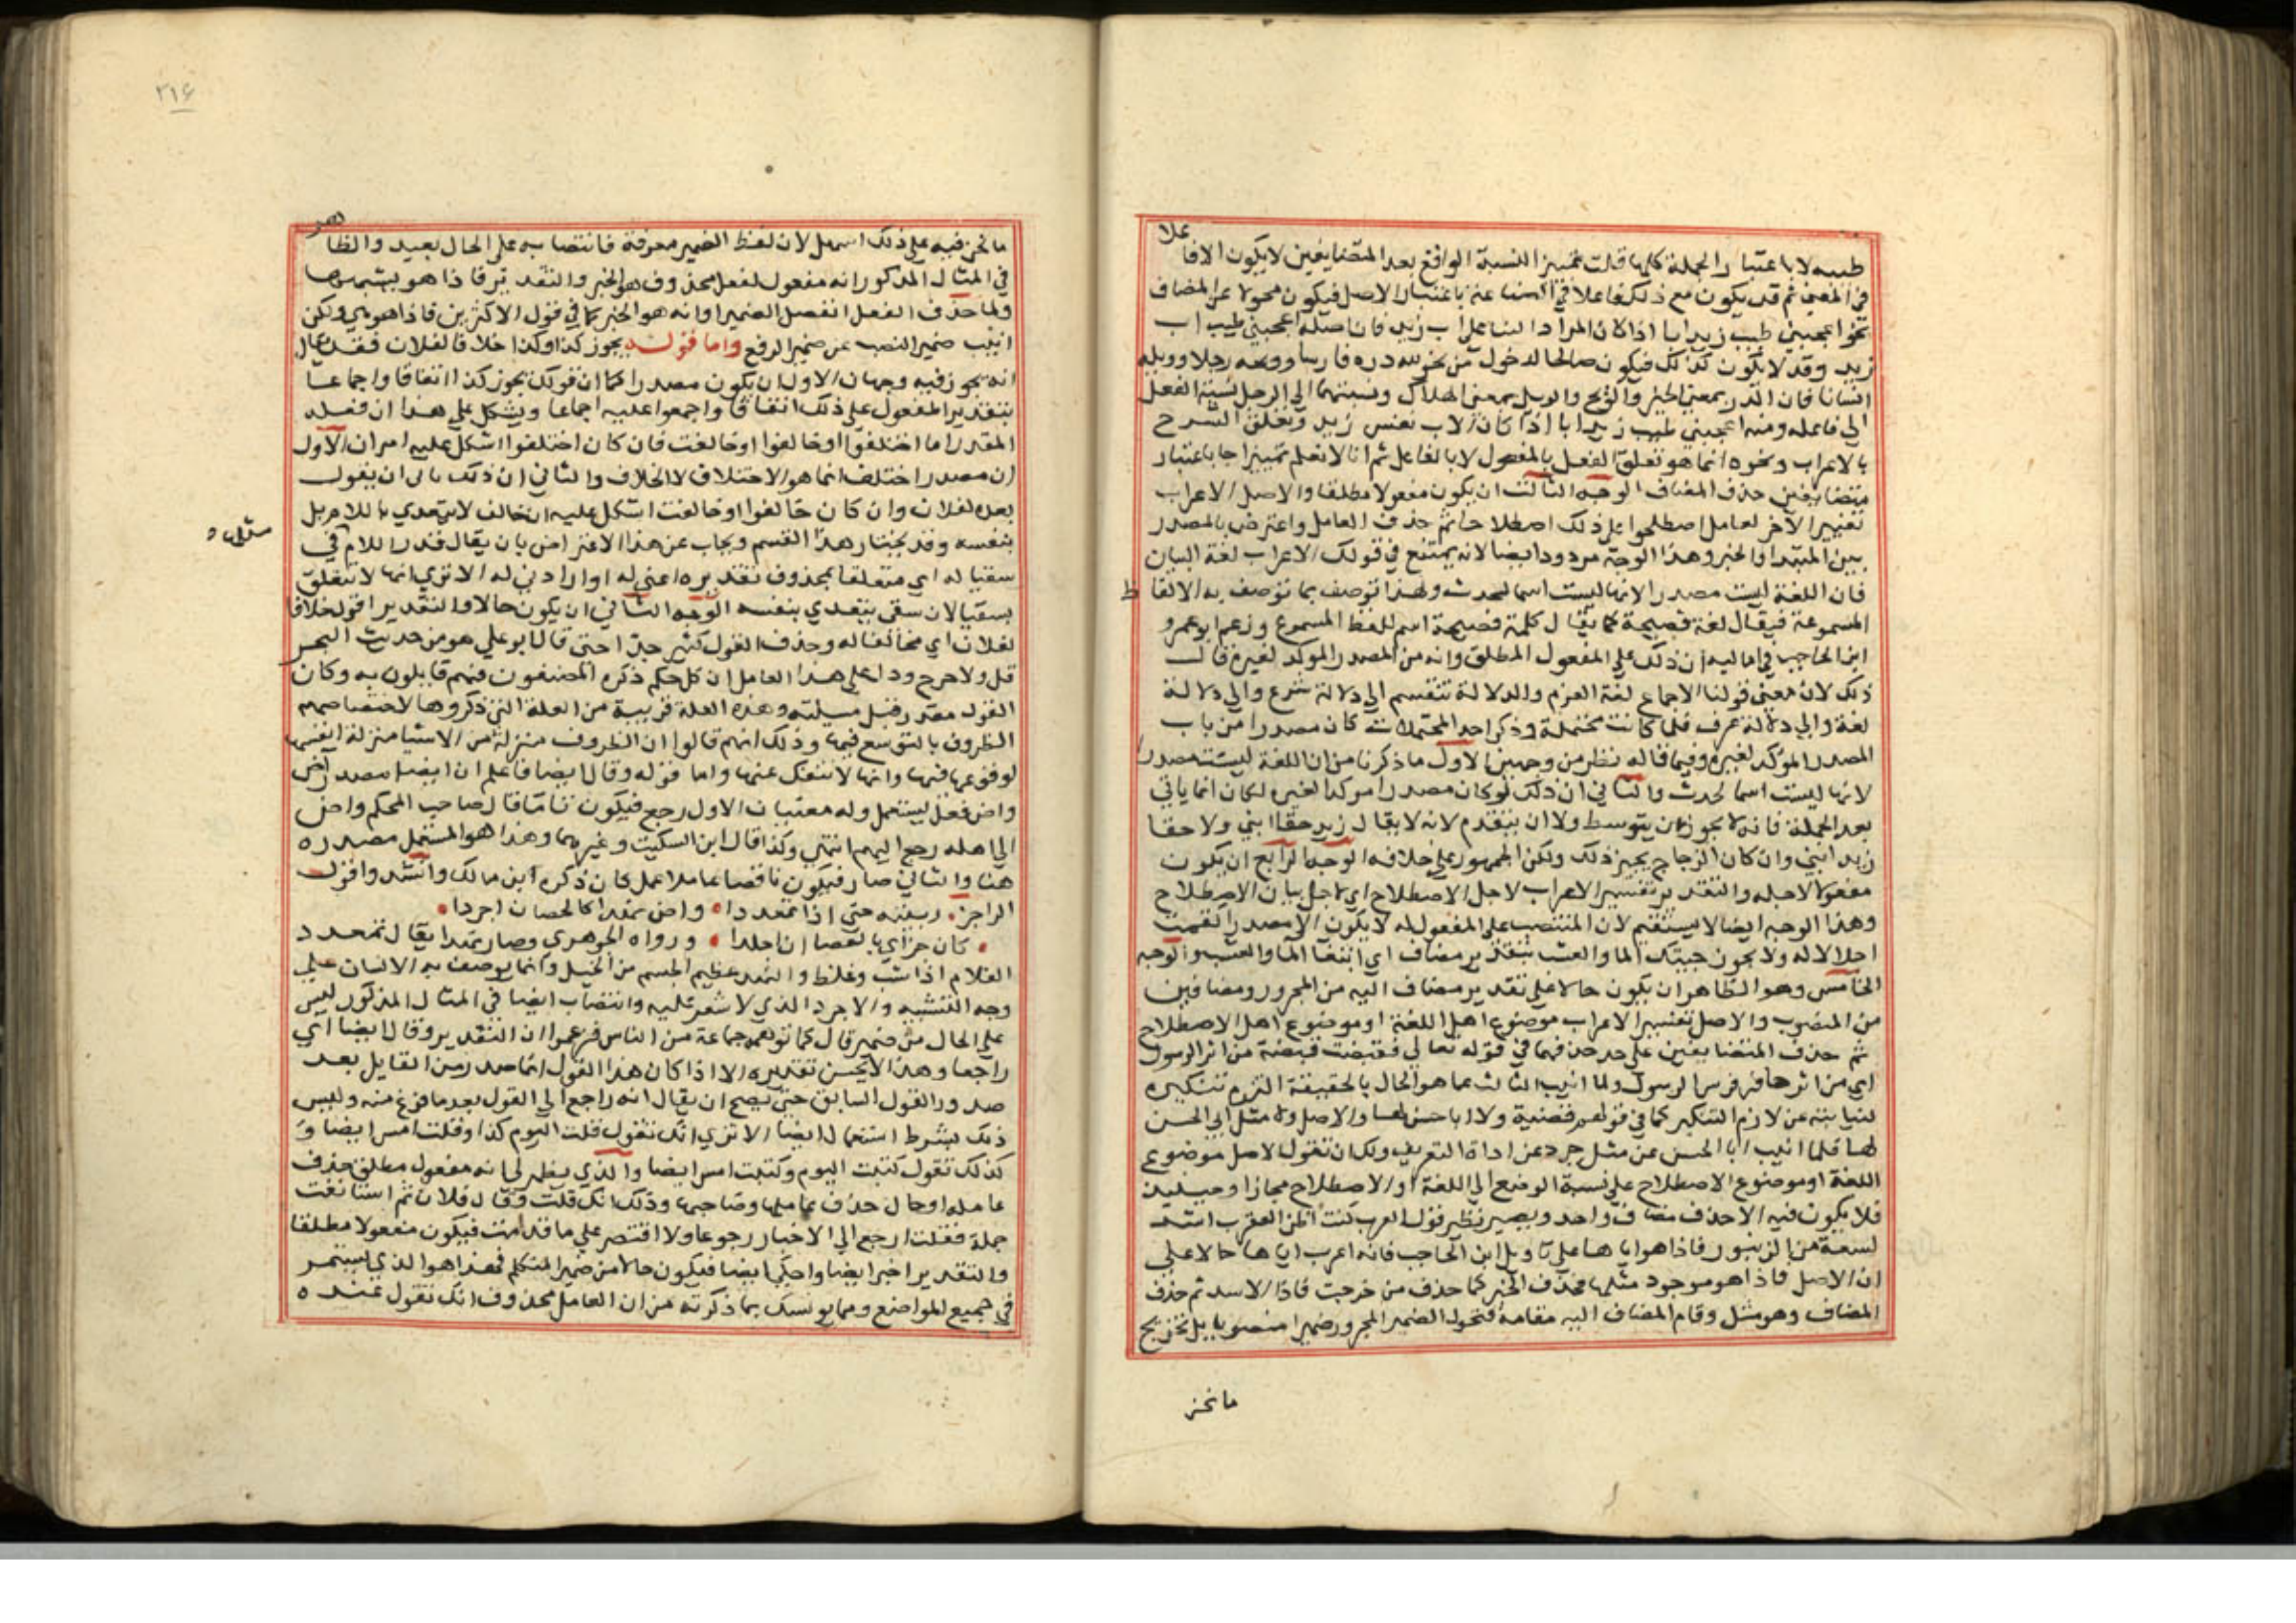 طيبه لا باعتبار الجملة كلها قلت تمييز النسبة الواقع بعد المتضايفين لا يكون الا فاعلا
في المعنى ثم قد يكون مع ذلك فاعلا في الصناعة باعتبار الاصل فيكون محولا عن المضاف
نحو اعجبني طيب زيد ابا اذا كان المراد الثنا على اب زيد فان اصله اعجبني طيب اب
زيد وقد لا يكون كذلك فيكون صالحا لدخول من نحو لله دره فارسا وويحه رجلا وويله
انسانا فان الدر بمعنى الخير والويح والويل بمعنى الهلاك ونسبتهما الي الرجل نسبة الفعل
الي فاعله ومنه اعجبني طيب زيد ابا اذا كان الاب نفس زيد وتعلق الشرح
بالاعراب ونحوه انما هو تعلق الفعل بالمفعول لا بالفاعل ثم انا لا نعلم تمييزا جا باعتبار
متضايفين حذف المضاف الوجه الثالث ان يكون مفعولا مطلقا والاصل الاعراب
تغيير الآخر لعامل اصطلحوا على ذلك اصطلاحا ثم حذف العامل واعترض بالمصدر
بين المبتدا والخبر وهذا الوجه مردود ايضا لانه يمتنع في قولك الاعراب لغة البيان
فان اللغة ليست مصدرا لانها ليست اسما لحدث ولهذا توصف بما توصف به الالفاظ
المسموعة فيقال لغة فصيحة كما يقال كلمة فصيحة اسم للفظ المسموع وزعم ابو عمرو
ابن الحاجب في اماليه ان ذلك على المفعول المطلق وانه من المصدر الموكد لغيره قال
ذلك لان معنى قولنا الاجماع لغة العزم والدلالة تنقسم الي دلالة شرع والي دلالة
لغة والي دلالة عرف فلما كانت محتملة وذكر احد المحتملات كان مصدرا من باب
المصدر المؤكد لغيره وفيما قاله نظر من وجهين الاول ما ذكرنا من ان اللغة ليست مصدرا
لانها ليست اسما لحدث والثاني ان ذلك لو كان مصدرا موكدا لغيره لكان انما ياتي
بعد الجملة فانه لا يجوز ان يتوسط ولا ان يتقدم لانه لا يقال زيد حقا ابني ولا حقا
زيد ابني وان كان الزجاج يجيز ذلك ولكن الجمهور على خلافه الوجه الرابع ان يكون
مفعولا لاجله والتقدير تفسير الاعراب لاجل الاصطلاح اي لاجل بيان الاصطلاح
وهذا الوجه ايضا لا يستقيم لان المنتصب على المفعول له لا يكون الا مصدرا كقمت
اجلالا له ولا يجوز جيتك الما والعشب بتقدير مضاف اي ابتغا الما والعشب والوجه
الخامس وهو الظاهر ان يكون حالا على تقدير مضاف اليه من المجرور ومضافين
من المنصوب والاصل تفسير الاعراب موضوع اهل اللغة او موضوع اهل الاصطلاح
ثم حذف المتضايفين على حد حذفهما في قوله تعالي فقبضت قبضة من اثر الرسول
اي من اثر حافر فرس الرسول ولما انيب الثالث عما هو الحال بالحقيقة التزم تنكيره
لنيابته عن لازم التنكير كما في قولهم قضية ولا ابا حسن لها والاصل ولا مثل ابي الحسن
لها فلما انيب ابا الحسن عن مثل جرد عن اداة التعريف ولك ان تقول الاصل موضوع
اللغة او موضوع الاصطلاح على نسبة الوضع الي اللغة او الاصطلاح مجازا وحينئذ
فلا يكون فيه الا حذف مضاف واحد ويصير نظير قول العرب كنت اظن العقرب اشد
لسعة من الزنبور فاذا هو اياها على تاويل ابن الحاجب فانه اعرب اياها حالا على
ان الاصل فاذا هو موجود مثلها فحذف الخبر كما حذف من خرجت فاذا الاسد ثم حذف
المضاف وهو مثل وقام المضاف اليه مقامه فتحول الضمير المجرور ضميرا منصوبا بل تخريج
ما نحن
٢١٤
ما نحن فيه على ذلك اسهل لان لفظ الضمير معرفة فانتصابه على الحال بعيد والظاهر
في المثال المذكور انه مفعول لفعل محذوف هو الخبر والتقدير فاذا هو يشبهها
ولما حذف الفعل انفصل الضمير او انه هو الخبر كما في قول الاكثرين فاذا هو هي ولكن
انيب ضمير النصب عن ضمير الرفع واما قولـه يجوز كذا وكذا خلافا لفلان فقد يقال
انه يجوز فيه وجهان الاول ان يكون مصدرا كما ان قولك يجوز كذا اتفاقا واجماعا
بتقدير المفعول على ذلك اتفاقا واجمعوا عليه اجماعا ويشكل على هذا ان فعله
المقدر اما اختلفوا او خالفوا او خالفت فان كان اختلفوا اشكل عليه امران الاول
ان مصدر اختلف انما هو الاختلاف لا الخلاف والثاني ان ذلك يابى ان يقول
بعده لفلان وان كان خالفوا او خالفت اشكل عليه ان خالف لا يتعدي باللام بل
بنفسه وقد يختار هذا القسم ويجاب عن هذا الاعتراض بان يقال قدر اللام في
سقيا له اي متعلقا بمحذوف تقديره اعني له او ارادتي له الا تري انها لا تتعلق
بسقيا لان سقى يتعدي بنفسه الوجه الثاني ان يكون حالا والتقدير اقول خلافا
لفلان اي مخالفا له وحذف القول كثير جدا حتى قال ابو علي هو من حديث البحر
قل ولا حرج ودل على هذا العامل ان كل حكم ذكره المصنفون فهم قايلون به وكان
القول مقدر قبل مسيلته وهذه العلة قريبة من العلة التي ذكروها لاختصاصهم
الظروف بالتوسع فيها وذلك انهم قالوا ان الظروف منزلة من الاشيا منزلة انفسها
لوقوعها فيها وانها لا تنفك عنها واما قوله وقال ايضا فاعلم ان ايضا مصدر آض
واض فعل يستعمل وله معنيان الاول رجع فيكون تاما قال صاحب المحكم واض
الي اهله رجع اليهم انتهي وكذا قال ابن السكيت وغيرهما وهذا هو المستعمل مصدره
هنا والثاني صار فيكون ناقصا عاملا عمل كان ذكره ابن مالك وانشد واقول
الراجز ربيته حتى اذا تمعددا واض نهدا كالحصان اجردا
كان جزاي بالعصا ان اجلدا ورواه الجوهري وصار نهدا يقال تمعدد
الغلام اذا شب وغلظ والنهد عظيم الجسم من الخيل وانما يوصف به الانسان على
وجه التشبيه والاجرد الذي لا شعر عليه وانتصاب ايضا في المثال المذكور ليس
على الحال من ضمير قال كما توهمه جماعة من الناس فزعموا ان التقدير وقال ايضا اي
راجعا وهذا لا يحسن تقديره الا اذا كان هذا القول انما صدر من القايل بعد
صدور القول السابق حتى يصح ان يقال انه راجع الي القول بعد ما فرغ منه وليس
ذلك بشرط استعمال ايضا الا تري انك تقول قلت اليوم كذا وقلت امس ايضا و
كذلك تقول كتبت اليوم وكتبت امس ايضا والذي يظهر لي انه مفعول مطلق حذف
عامله او حال حذف عاملها وصاحبها وذلك انك قلت وقال فلان ثم استانفت
جملة فقلت ارجع الي الاخبار رجوعا ولا اقتصر على ما قدمت فيكون مفعولا مطلقا
والتقدير اخبر ايضا واحكي ايضا فيكون حالا من ضمير المتكلم فهذا هو الذي يستمر
في جميع المواضع ومما يونسك بما ذكرته من ان العامل محذوف انك تقول عنده